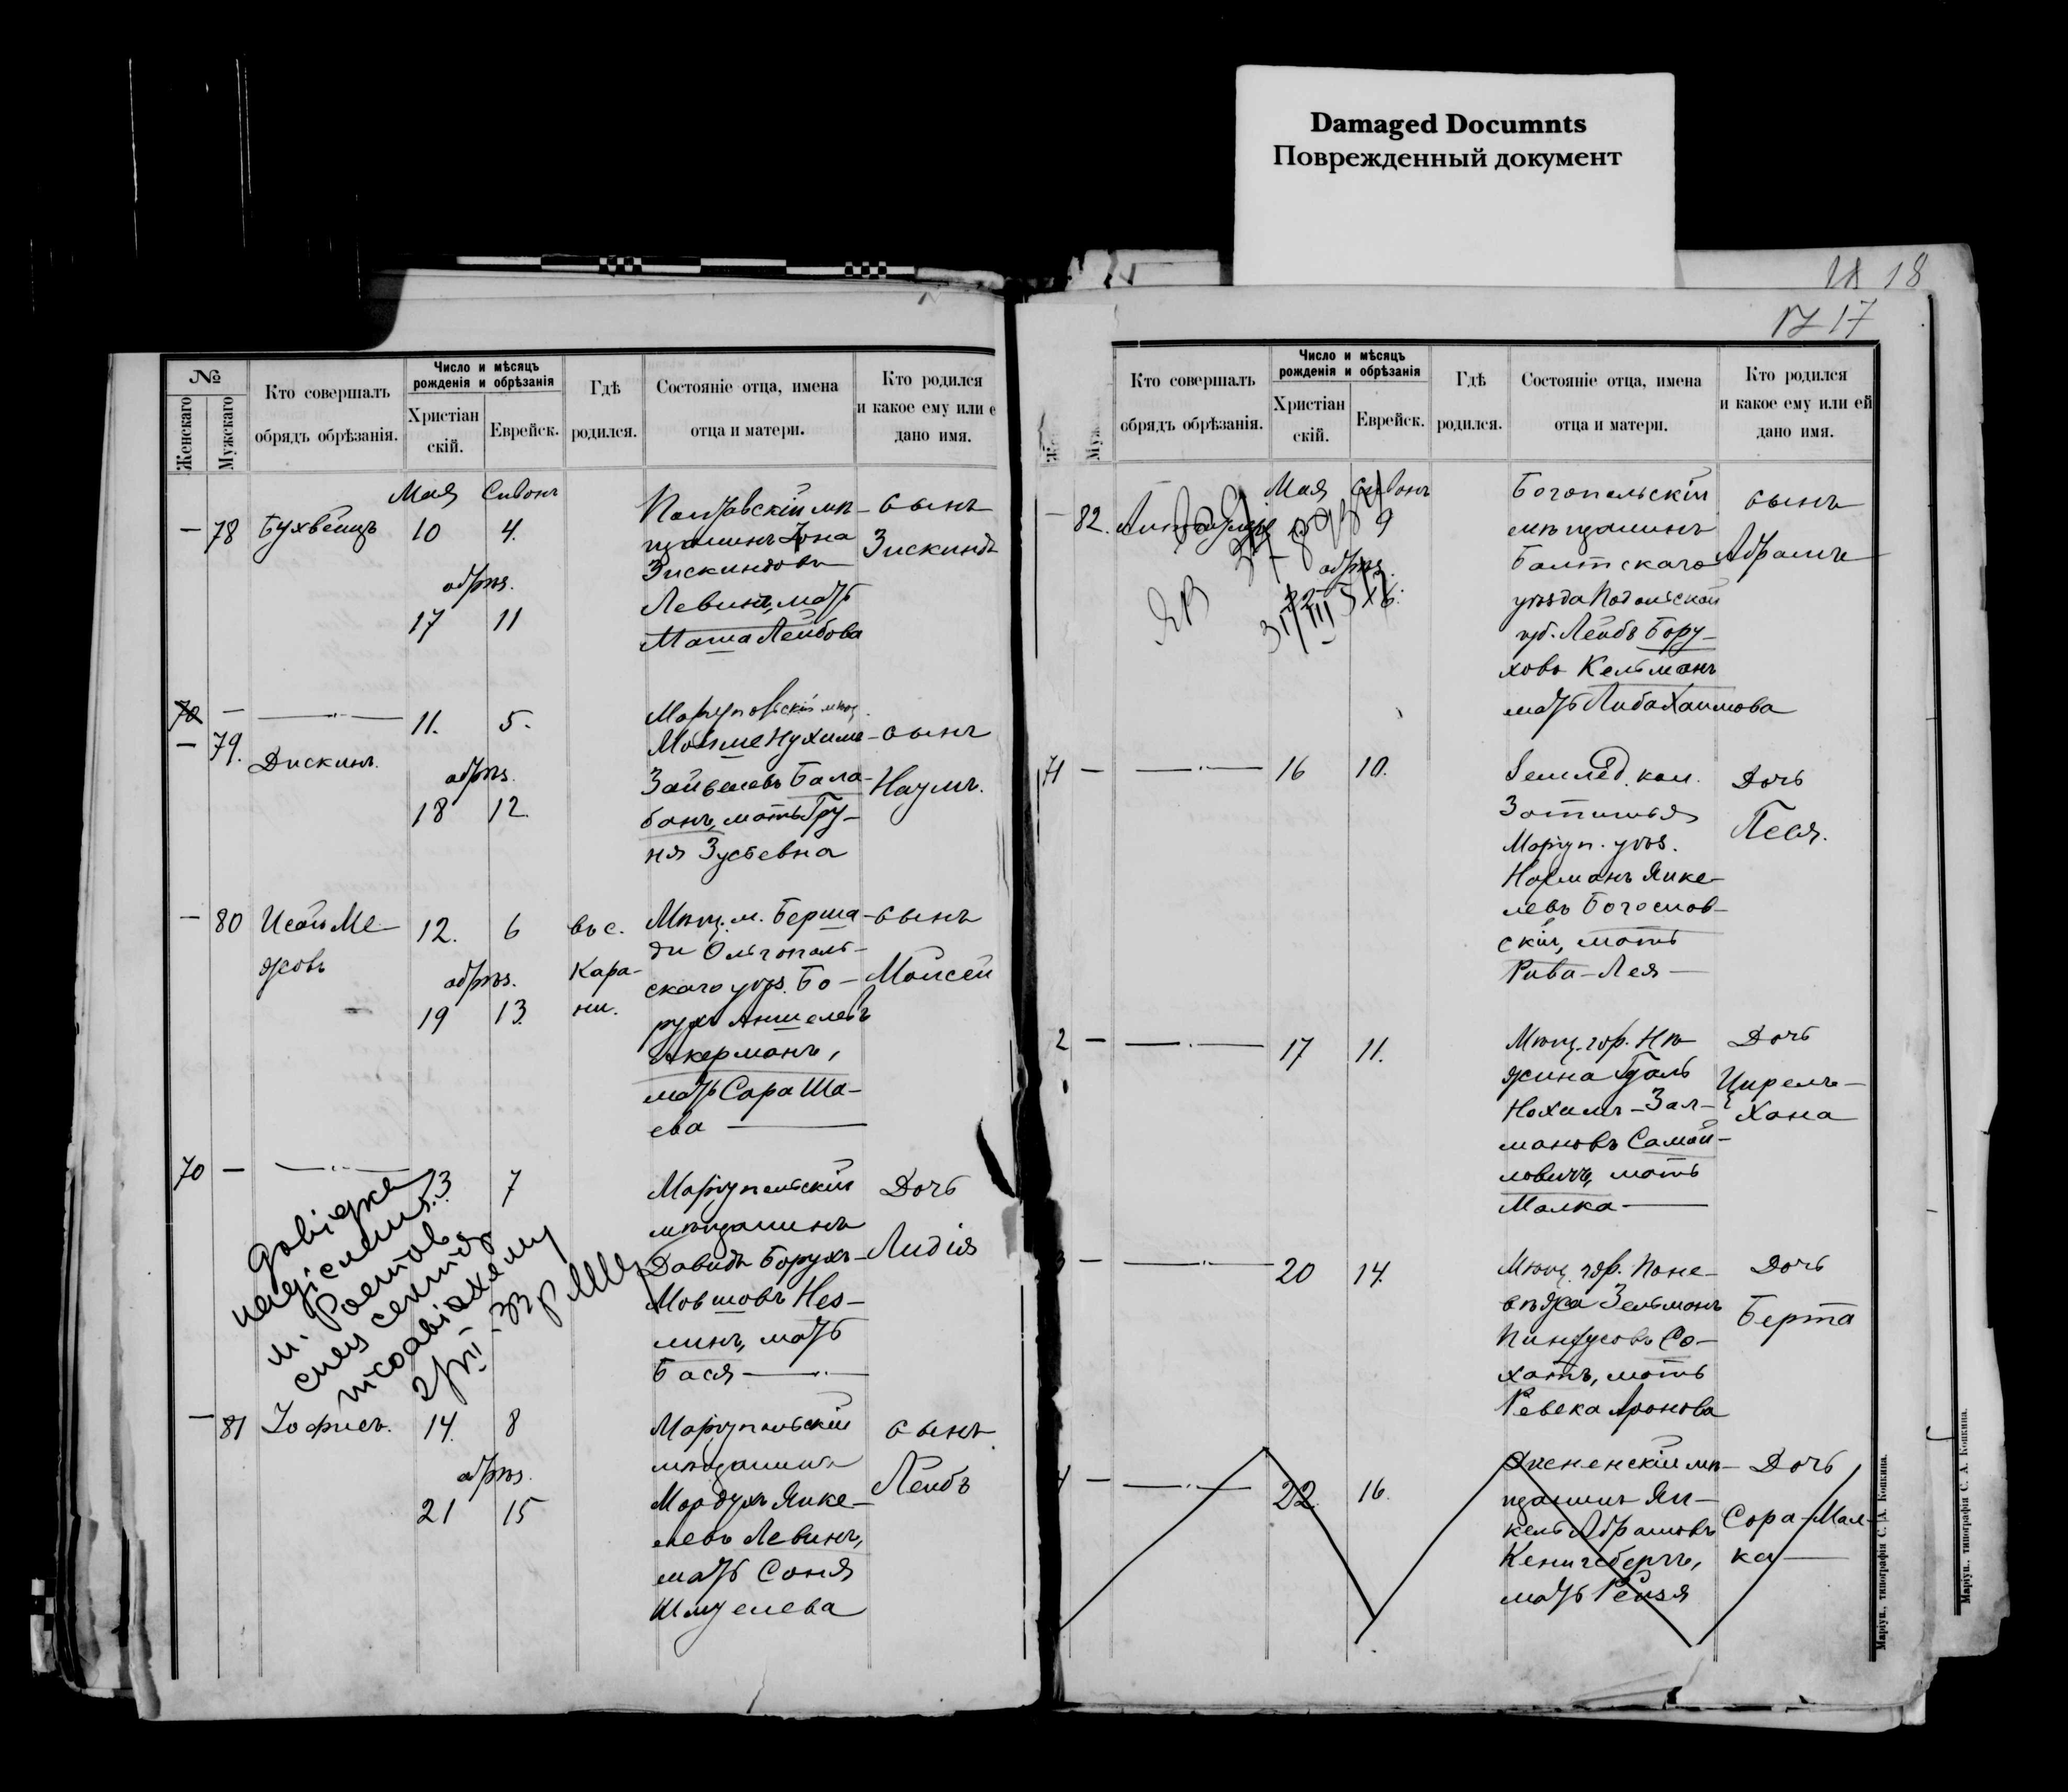 Damaged Documnts
Поврежденный документ
18
17
№
Женскаго
Мужскаго
Кто совершалъ
обрядъ обрѣзанія.
Число и мѣсяцъ
рожденія и обрѣзанія
Христіан
скій.
Еврейск.
Гдѣ
родился.
Состояніе отца, имена
отца и матери.
Кто родился
и какое ему или е
дано имя.
Мая Сивонъ
— 78 10 4.
обрѣз.
17 11
Полтавскій мѣ-
щанинъ Іона
Зискиндовъ
Левинъ, мать
Маша Лейбова
сынъ
Зискиндъ
70 —
— 79. Дискинъ.
11. 5.
обрѣз.
18 12.
Мовше Нухимъ
Зайвелевъ Бала-
банъ, мать Гру-
ня Зусьевна
сынъ
Наумъ.
— 80 Исай Ме-
жовъ
12. 6
обрѣз.
19 13.
въ с.
Кара-
ни.
Мѣщ. м. Берша-
ди Ольгополь-
скаго уѣз. Бо-
рухъ Аншелевъ
Акерманъ,
мать Сара Ша-
ева
сынъ
Моисей
70 — 13. 7
Маріупольскій
мѣщанинъ
Давидъ Борухъ-
Мовшовъ Нез-
линъ, мать
Бася
Дочь
Лидія
— 81 Іофисъ.
14. 8
обрѣз.
21 15
Маріупольскій
мѣщанинъ
Мордухъ Янке-
левъ Левинъ,
мать Соня
Шмуелева
сынъ
Лейбъ
Кто совершалъ
обрядъ обрѣзанія.
Число и мѣсяцъ
рожденія и обрѣзанія
Христіан
скій.
Еврейск.
Гдѣ
родился.
Состояніе отца, имена
отца и матери.
Кто родился
и какое ему или ей
дано имя.
Мая Сивонъ
— 82. 9
обрѣз.
Богопольскій
мѣщанинъ
Балтскаго
уѣзда Подольской
губ. Лейбъ Бору-
ховъ Кельманъ
мать Либа Хаимова
сынъ
Абрамъ
71 — 16 10.
Землед. кол.
Затишья
Маріуп. уѣз.
Нахманъ Янке-
левъ Богослов-
скій, мать
Рива-Лея
Дочь
Песя.
2 — 17 11.
Мѣщ. гор. Нѣ-
жина
Нохимъ-Зал-
мановъ Самой-
ловичъ, мать
Малка
Дочь
Цирель-
Хана
3 — 20 14.
Мѣщ. гор. Поне-
вѣжа Зельманъ
Пинхусовъ Со-
хатъ, мать
Ревека Аронова
Дочь
Берта
— 22. 16.
Дисненскій мѣ-
щанинъ Ян-
кель Абрамовъ
Кенигсбергъ,
мать Рейзя
Дочь
Сора-Мал-
ка
Маріуп., типографія С. А. Копкина.
Маріуп., типографія С. А. Копкина.